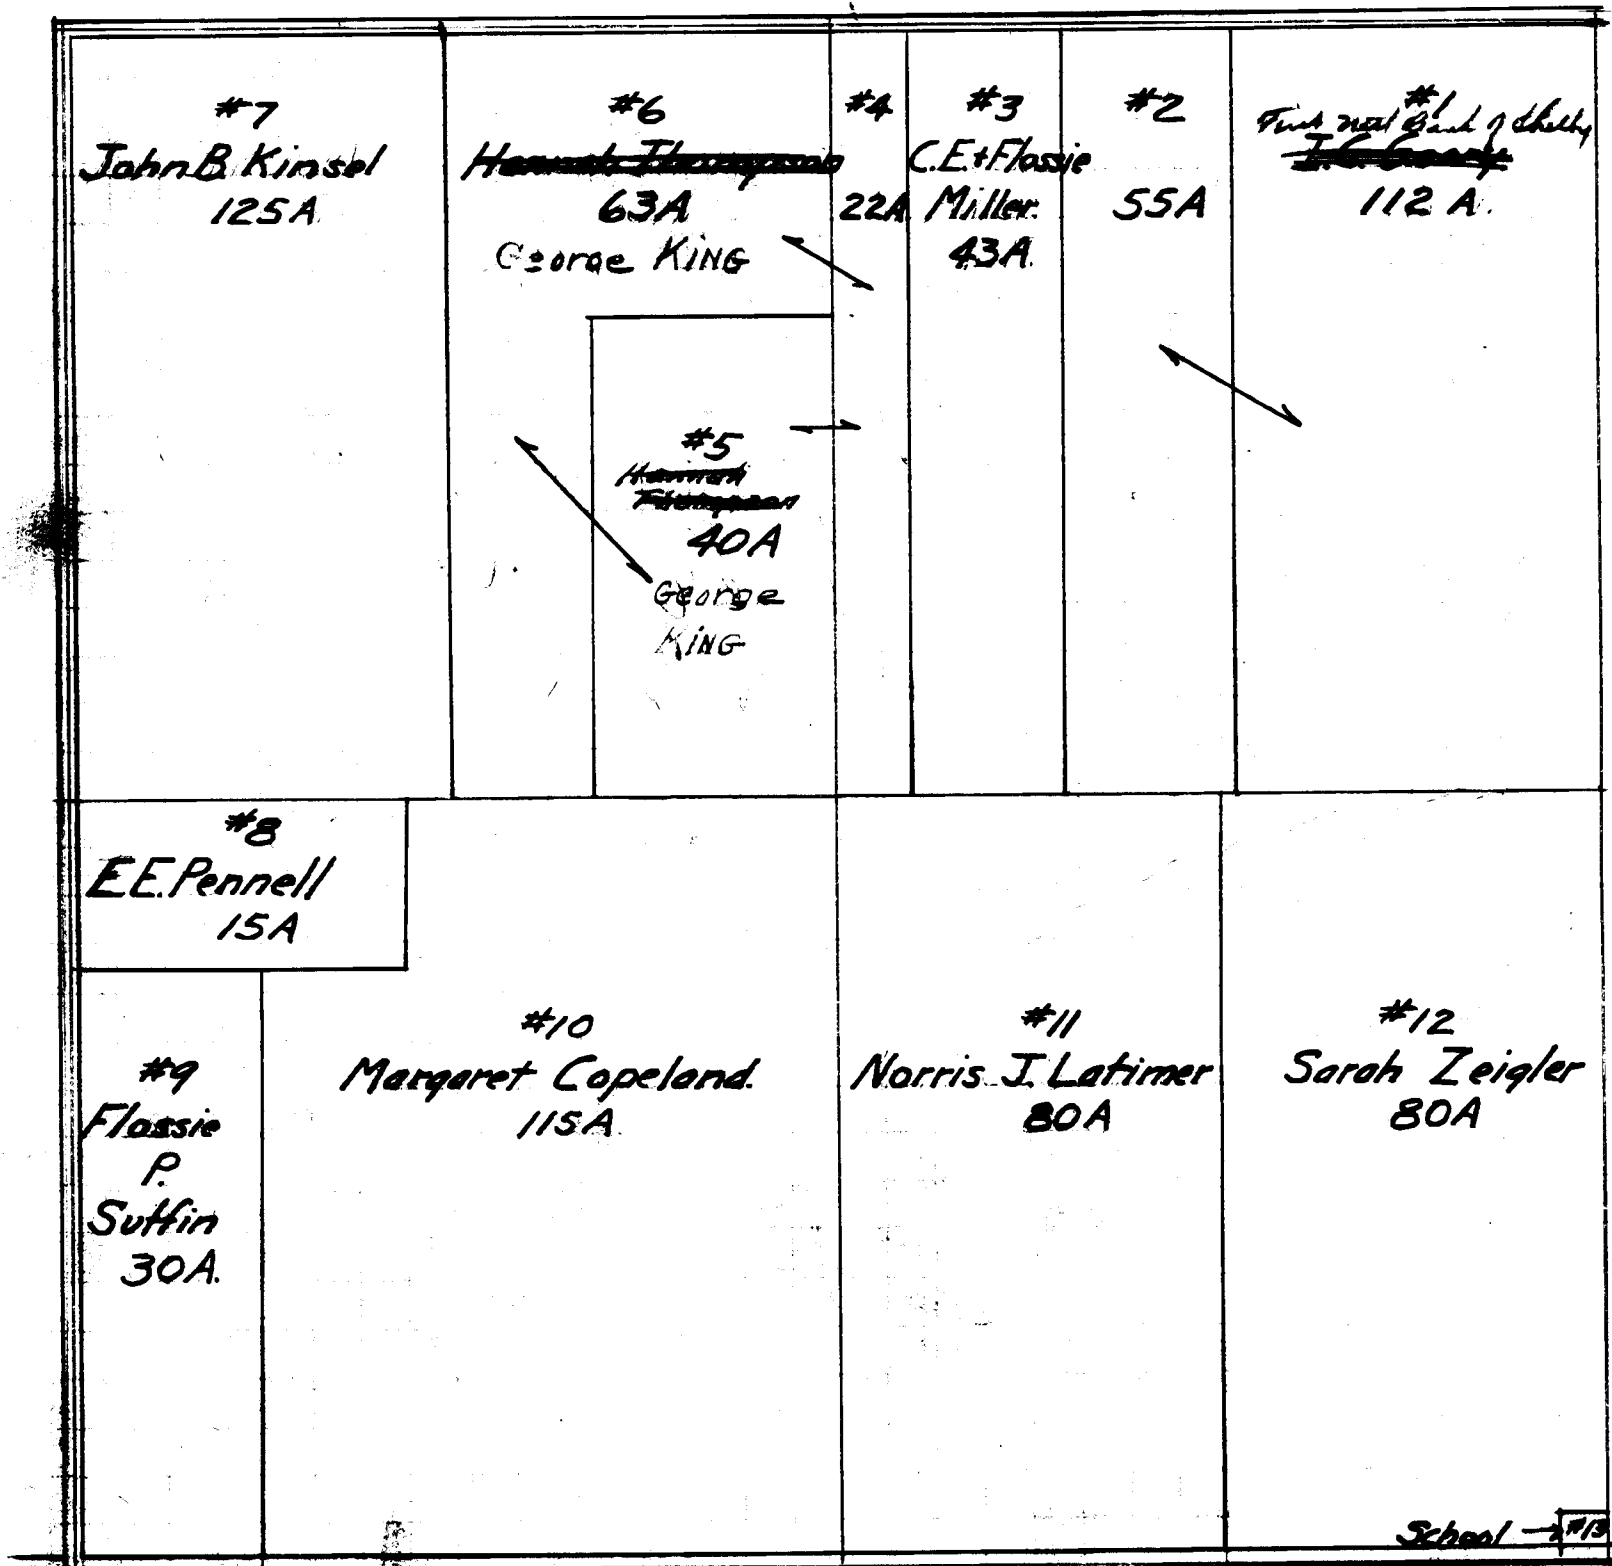 #7
John B. Kinsel
125A.
#6
Hannah Thompson
63A
George KING
#4
22A
#3
C.E.+Flossie
Miller.
43A.
#2
55A
#1
First Natl Bank of Shelby
112 A.
#5
Hannah
Thompson
40A
George
KING
#8
E.E. Pennell
15A
#9
Flossie
P.
Sutfin
30A.
#10
Margaret Copeland.
115A
#11
Norris J. Latimer
80A
#12
Sarah Zeigler
80A
School → #13